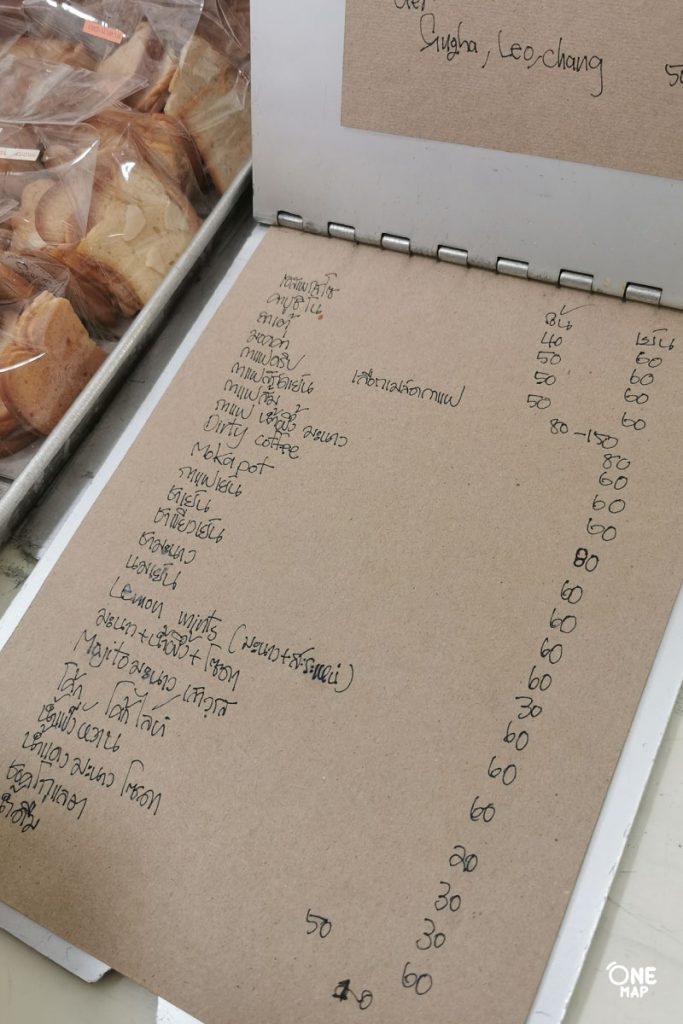 Singha, Leo, chang 50
ร้อน เย็น
เอสเพรสโซ 40 60
คาปูชิโน 50 60
ลาเต้ 50 60
มอคคา 50 60
กาแฟดริป เลือกเมล็ดกาแฟ 80-150
กาแฟสกัดเย็น 80
กาแฟส้ม 60
กาแฟ น้ำผึ้ง มะนาว 60
Dirty coffee 60
Moka pot 80
กาแฟเย็น 60
ชาเย็น 60
ชาเขียวเย็น 60
ชามะนาว 60
นมเย็น 30
Lemon mints (มะนาว+สะระแหน่) 60
มะนาว+น้ำผึ้ง+โซดา 60
Mojito มะนาว เสาวรส 60
โค้ก โค้กไลท์ 20
30
น้ำแดง มะนาว โซดา 30
ชอคโกแลต 50 60
น้ำดื่ม 10
ONE MAP